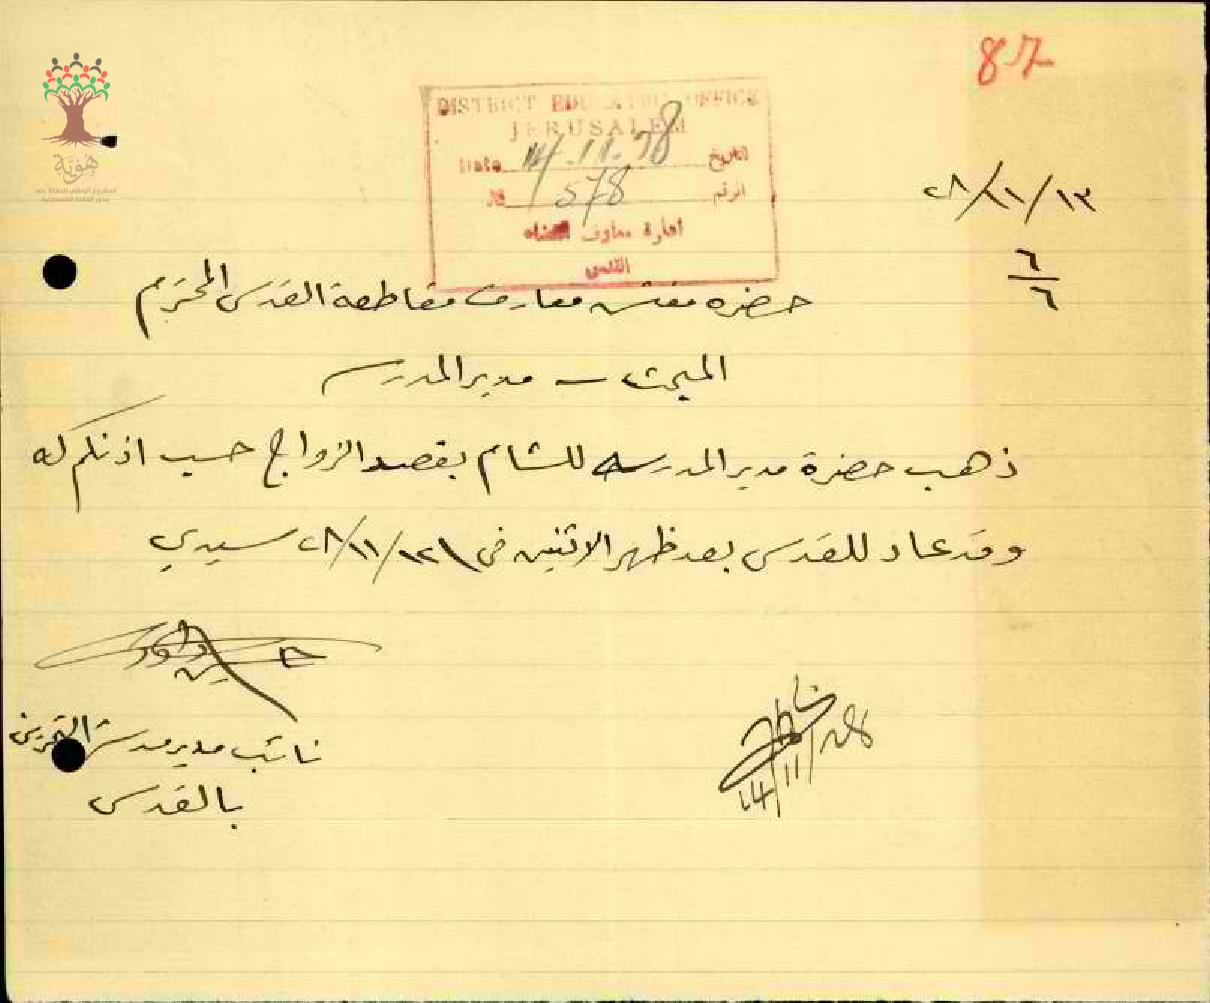 87
DISTRICT EDUCATION OFFICE
JERUSALEM
Date 14.11.28 التاريخ
№ 578 الرقم
ادارة معارف القضاء
القدس
١٣/١١/٢٨
٦/٦
حضرة مفتش معارف مقاطعة القدس المحترم
المبحث - مدير المدرسه
ذهب حضرة مدير المدرسه للشام بقصد الزواج حسب اذنكم له
وقد عاد للقدس بعد ظهر الاثنين في ١٢/١١/٢٨ سيدي
نائب مدير مدرسة
بالقدس
14/11/28
هوية
المشروع الوطني للحفاظ على
جذور العائلة الفلسطينية